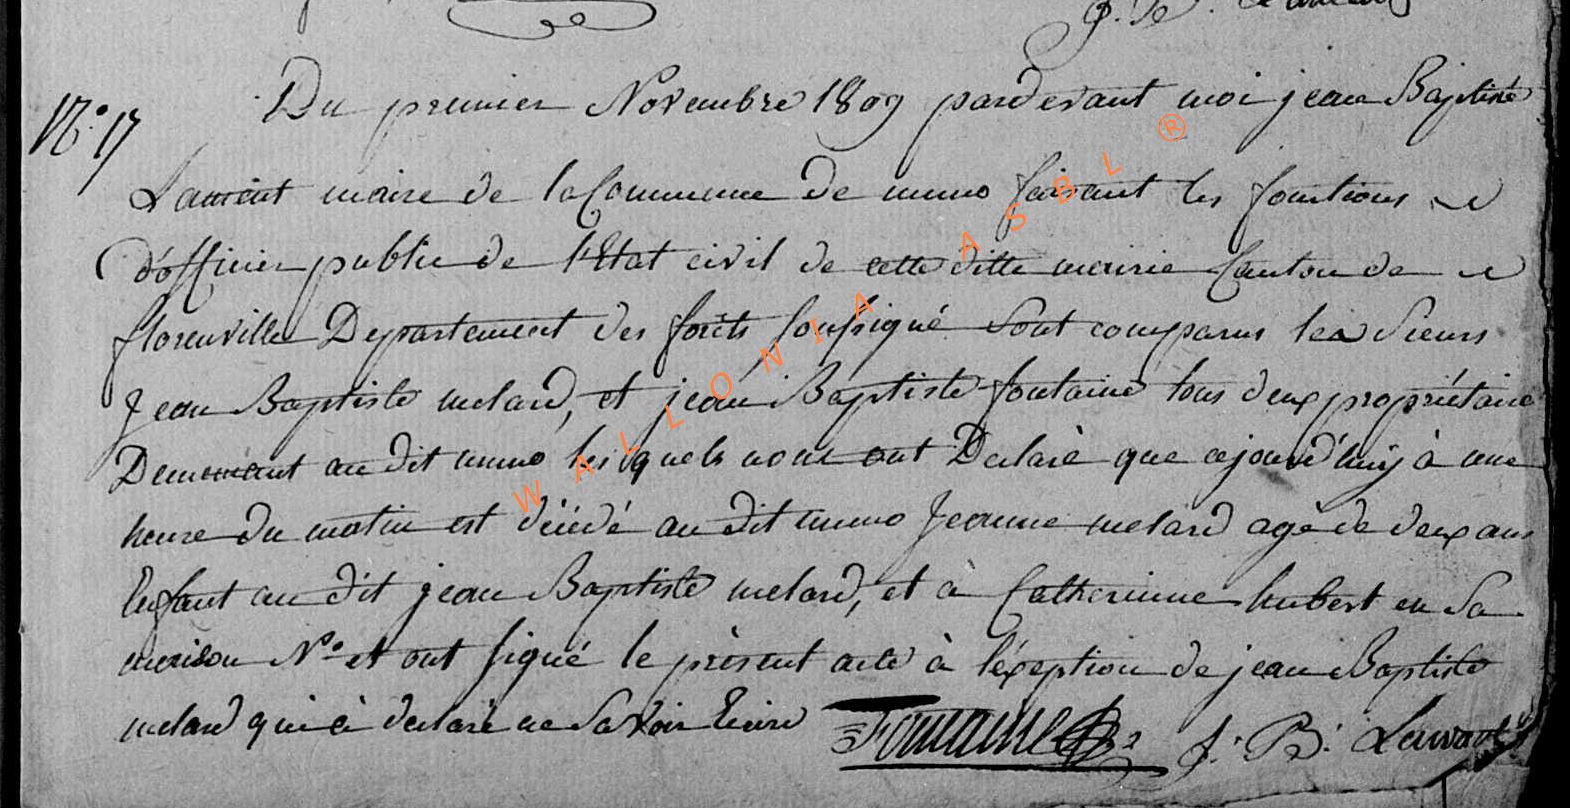 N.° 17
Du premier Novembre 1809 pardevant moi jean Baptiste
Laurent maire de la Commune de muno faisant les fonctions
d'officier public de l'Etat civil de cette ditte mairie Canton de
florenville Departement des forêts soussigné sont comparus les Sieurs
Jean Baptiste melard, et jean Baptiste fontaine tous deux propriétaire
Demeurant au dit muno les quels nous ont Déclaré que ajourd'huy à une
heure du matin est décédé au dit muno Jeanne melard agé de deux ans
Enfant au dit jean Baptiste melard, et à Catherinne hubert en Sa
maison N.° et ont signé le présent acte à l'éxeption de jean Baptiste
melard qui à declaré ne Savoir Ecrire
Fontaine J: B: Laurent
WALLONIA ASBL ®